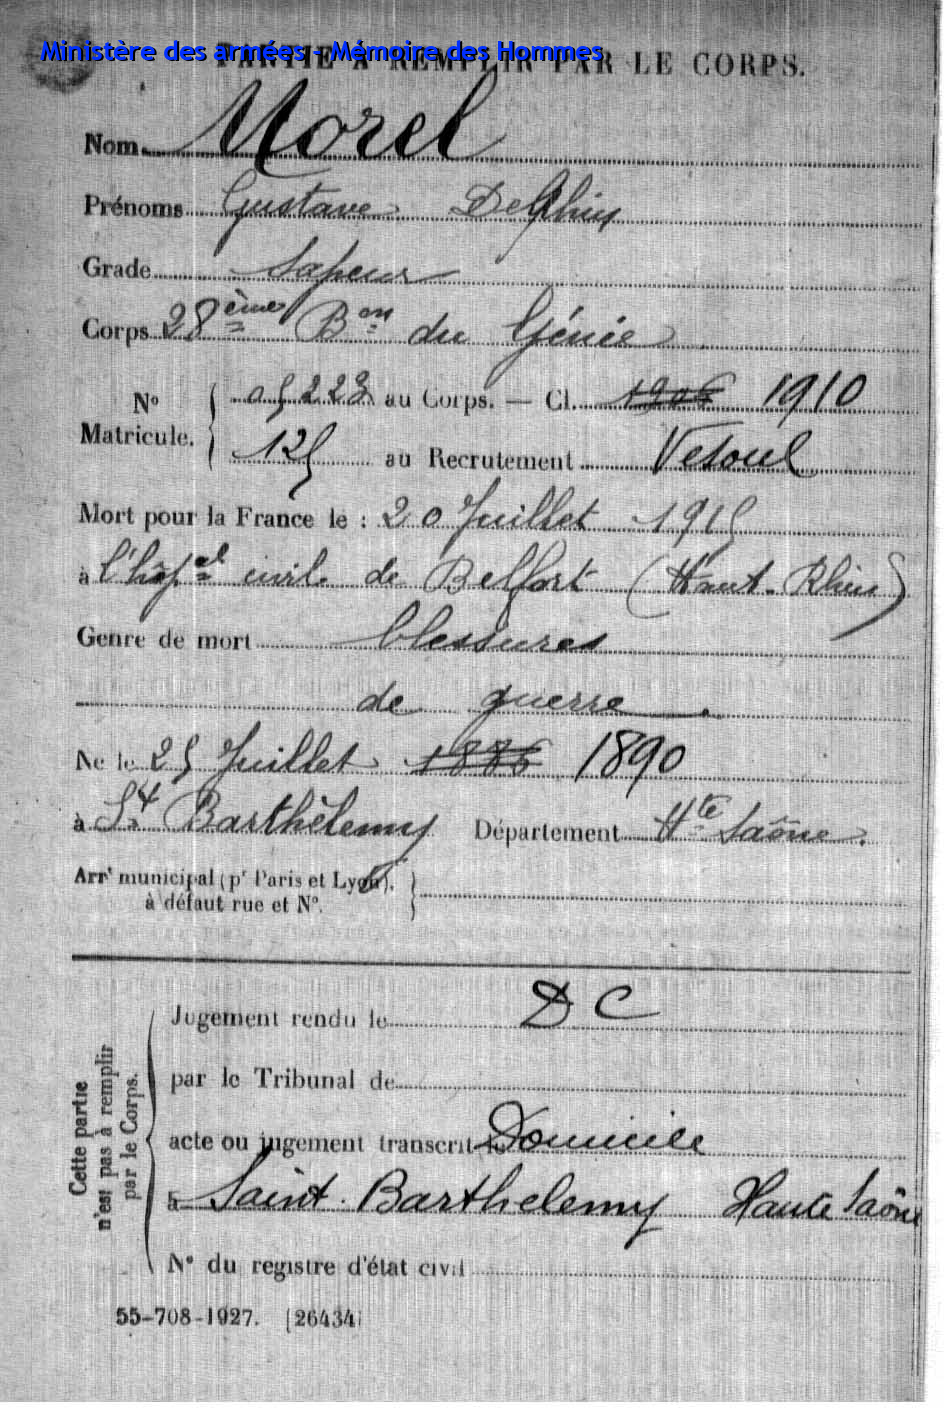 Ministère des armées - Mémoire des Hommes
PARTIE À REMPLIR PAR LE CORPS.
Nom Morel
Prénoms Gustave Delphin
Grade Sapeur
Corps 28ème Bon du Génie
No Matricule. { 05223 au Corps. — Cl. 1906 1910
125 au Recrutement Vesoul
Mort pour la France le : 20 Juillet 1915
à l'hôpal civil de Belfort (Haut-Rhin)
Genre de mort blessures
de guerre.
Né le 25 Juillet 1886 1890
à St Barthélemy Département Hte Saône.
Arrt municipal (pr Paris et Lyon),
à défaut rue et No. }
Cette partie n'est pas à remplir par le Corps. {
Jugement rendu le DC
par le Tribunal de
acte ou jugement transcrit le Domicile
à Saint-Barthelemy Haute Saône
No du registre d'état civil
55-708-1927. [26434]